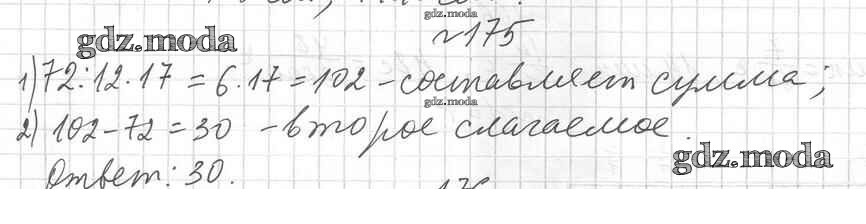 gdz.moda
№175
gdz.moda
1) 72:12·17 = 6·17 = 102 – составляет сумма;
gdz.moda
2) 102 – 72 = 30 – второе слагаемое.
gdz.moda
Ответ: 30.
gdz.moda